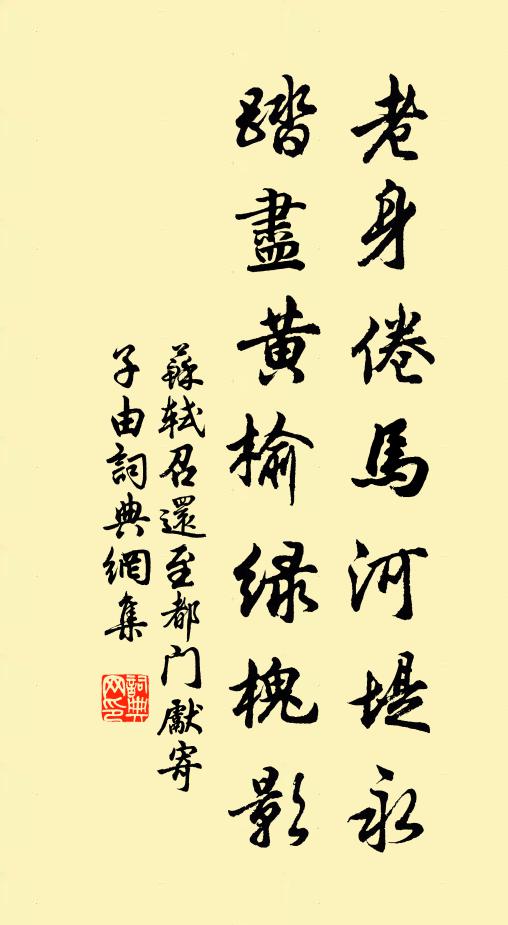 老身倦馬河堤永
踏盡黃榆綠槐影
蘇軾召還至都門獻寄
子由詞典網集
詞典
网印